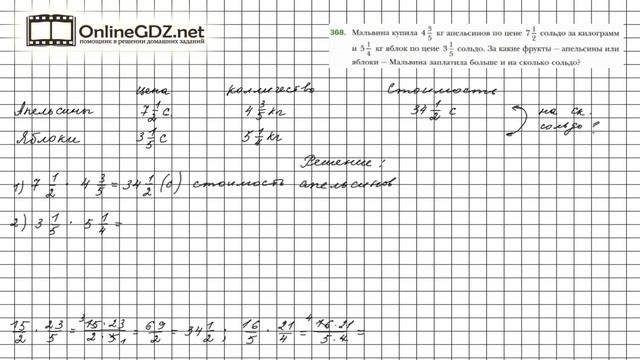 OnlineGDZ.net
помощник в решении домашних заданий
368. Мальвина купила 4 3/5 кг апельсинов по цене 7 1/2 сольдо за килограмм
и 5 1/4 кг яблок по цене 3 1/5 сольдо. За какие фрукты – апельсины или
яблоки – Мальвина заплатила больше и на сколько сольдо?
цена колличество Стоимость
Апельсины 7 1/2 с. 4 3/5 кг 34 1/2 с
на ск. сольдо?
Яблоки 3 1/5 с 5 1/4 кг
Решение:
1) 7 1/2 · 4 3/5 = 34 1/2 (с) стоимость апельсинов
2) 3 1/5 · 5 1/4 =
15/2 · 23/5 = 3 15·23/2·5 1 = 69/2 = 34 1/2; 16/5 · 21/4 = 4 16·21/5·4 =